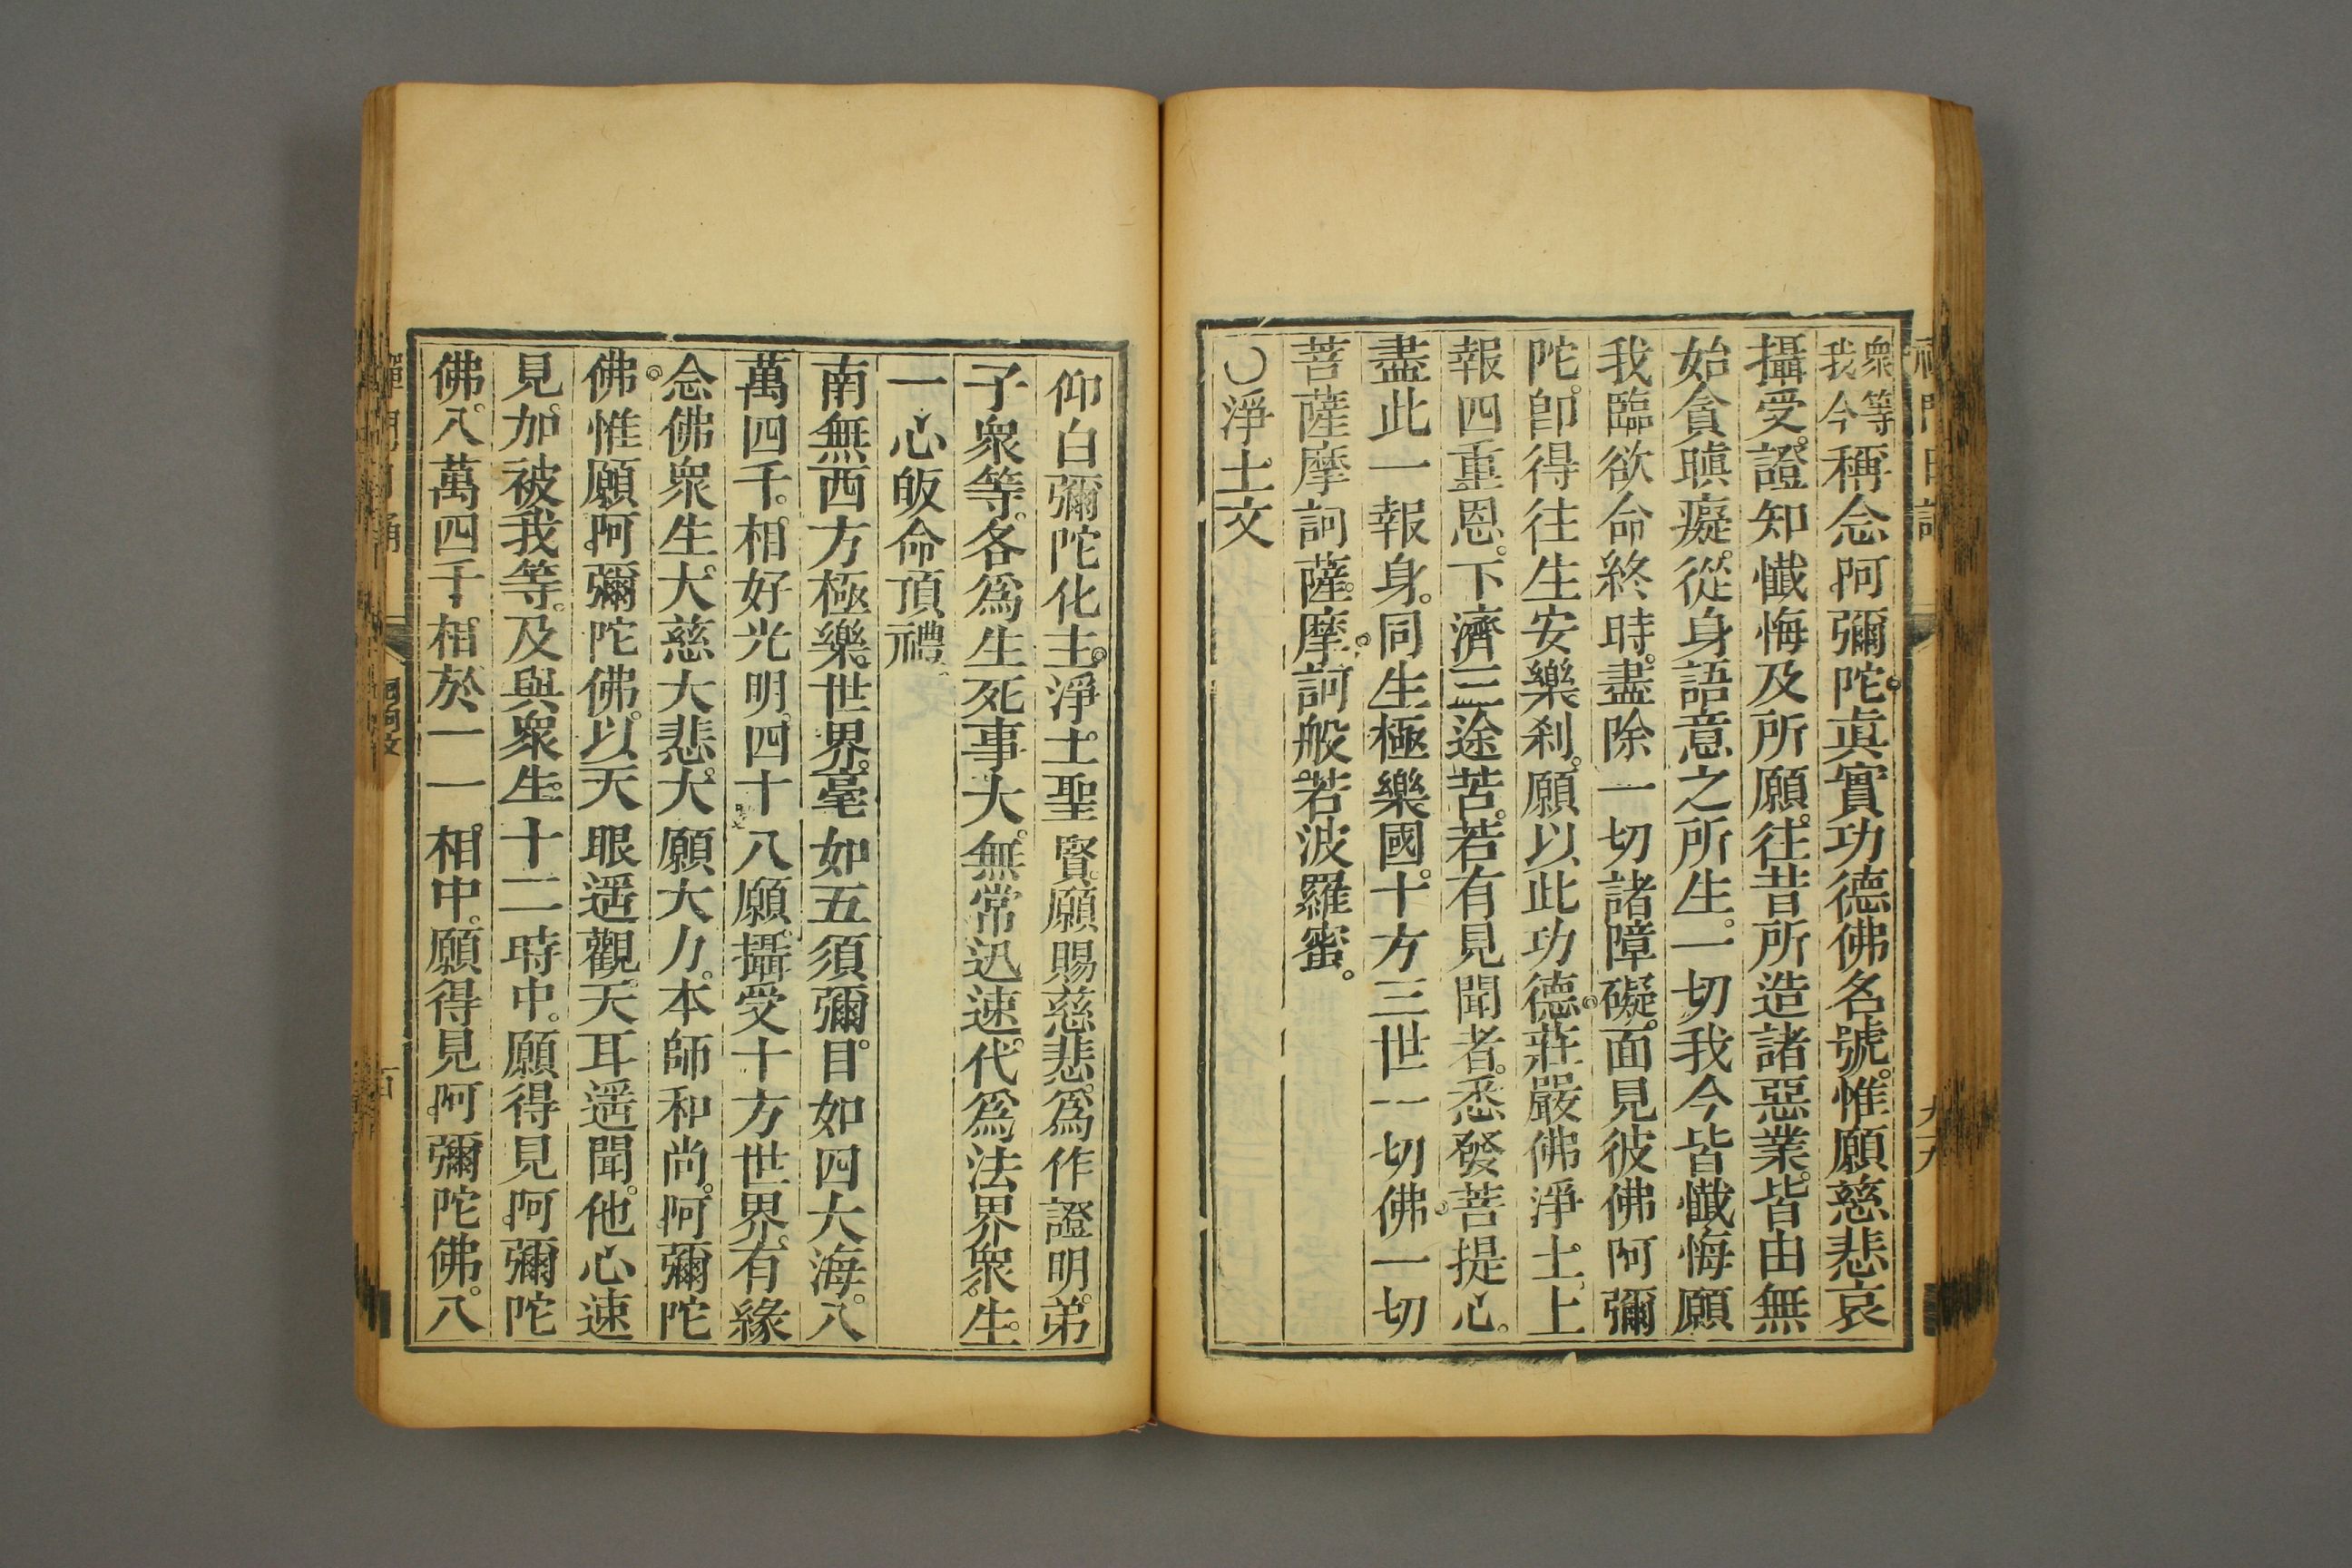 衆等我今稱念阿彌陀。眞實功德佛名號。惟願慈悲哀
攝受。證知懺悔及所願。往昔所造諸惡業。皆由無
始貪瞋癡。從身語意之所生。一切我今皆懺悔願
我臨欲命終時。盡除一切諸障礙。面見彼佛阿彌
陀。卽得往生安樂刹。願以此功德。莊嚴佛淨土。上
報四重恩。下濟三途苦。若有見聞者。悉發菩提心。
盡此一報身。同生極樂國。十方三世一切佛。一切
菩薩摩訶薩。摩訶般若波羅蜜。
○淨土文
仰白彌陀化主。淨土聖賢。願賜慈悲。爲作證明。弟
子衆等。各爲生死事大。無常迅速。代爲法界衆生。
一心皈命頂禮。
南無西方極樂世界。毫如五須彌。目如四大海。八
萬四千。相好光明。四十八願。攝受十方世界。有緣
念佛衆生。大慈大悲。大願大力。本師和尚。阿彌陀
佛。惟願阿彌陀佛。以天眼遥觀。天耳遥聞。他心速
見。加被我等。及與衆生。十二時中。願得見阿彌陀
佛。八萬四千相。於一一相中。願得見阿彌陀佛。八